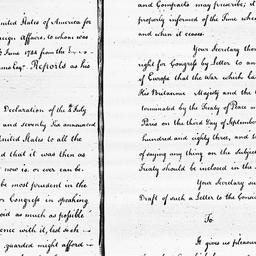 nited States of America for
eign Affairs, to whom was
June 1784 from the
ams Esqr. Reports as his
Declaration of the 2 July
and seventy Six announced
United States to all the
d that it was then as
now is. or ever can be.
be most prudent in the
or Congress in speaking
oid as much as possible
ence with it, led such
guarded might afford
and Compacts may prescribe; it
properly informed of the Time when
and when it ceases.
Your Secretary
right for Congress by Letter to an
of Europe that the War which la
His Britannic Majesty and the
terminated by the Treaty of Peace
Paris on the third Day of September
hundred and eighty three, and
of saying any thing on the Subject
Treaty should be inclosed in the
Your Secretary su
Draft of such a Letter to the
To
It gives us pleasu